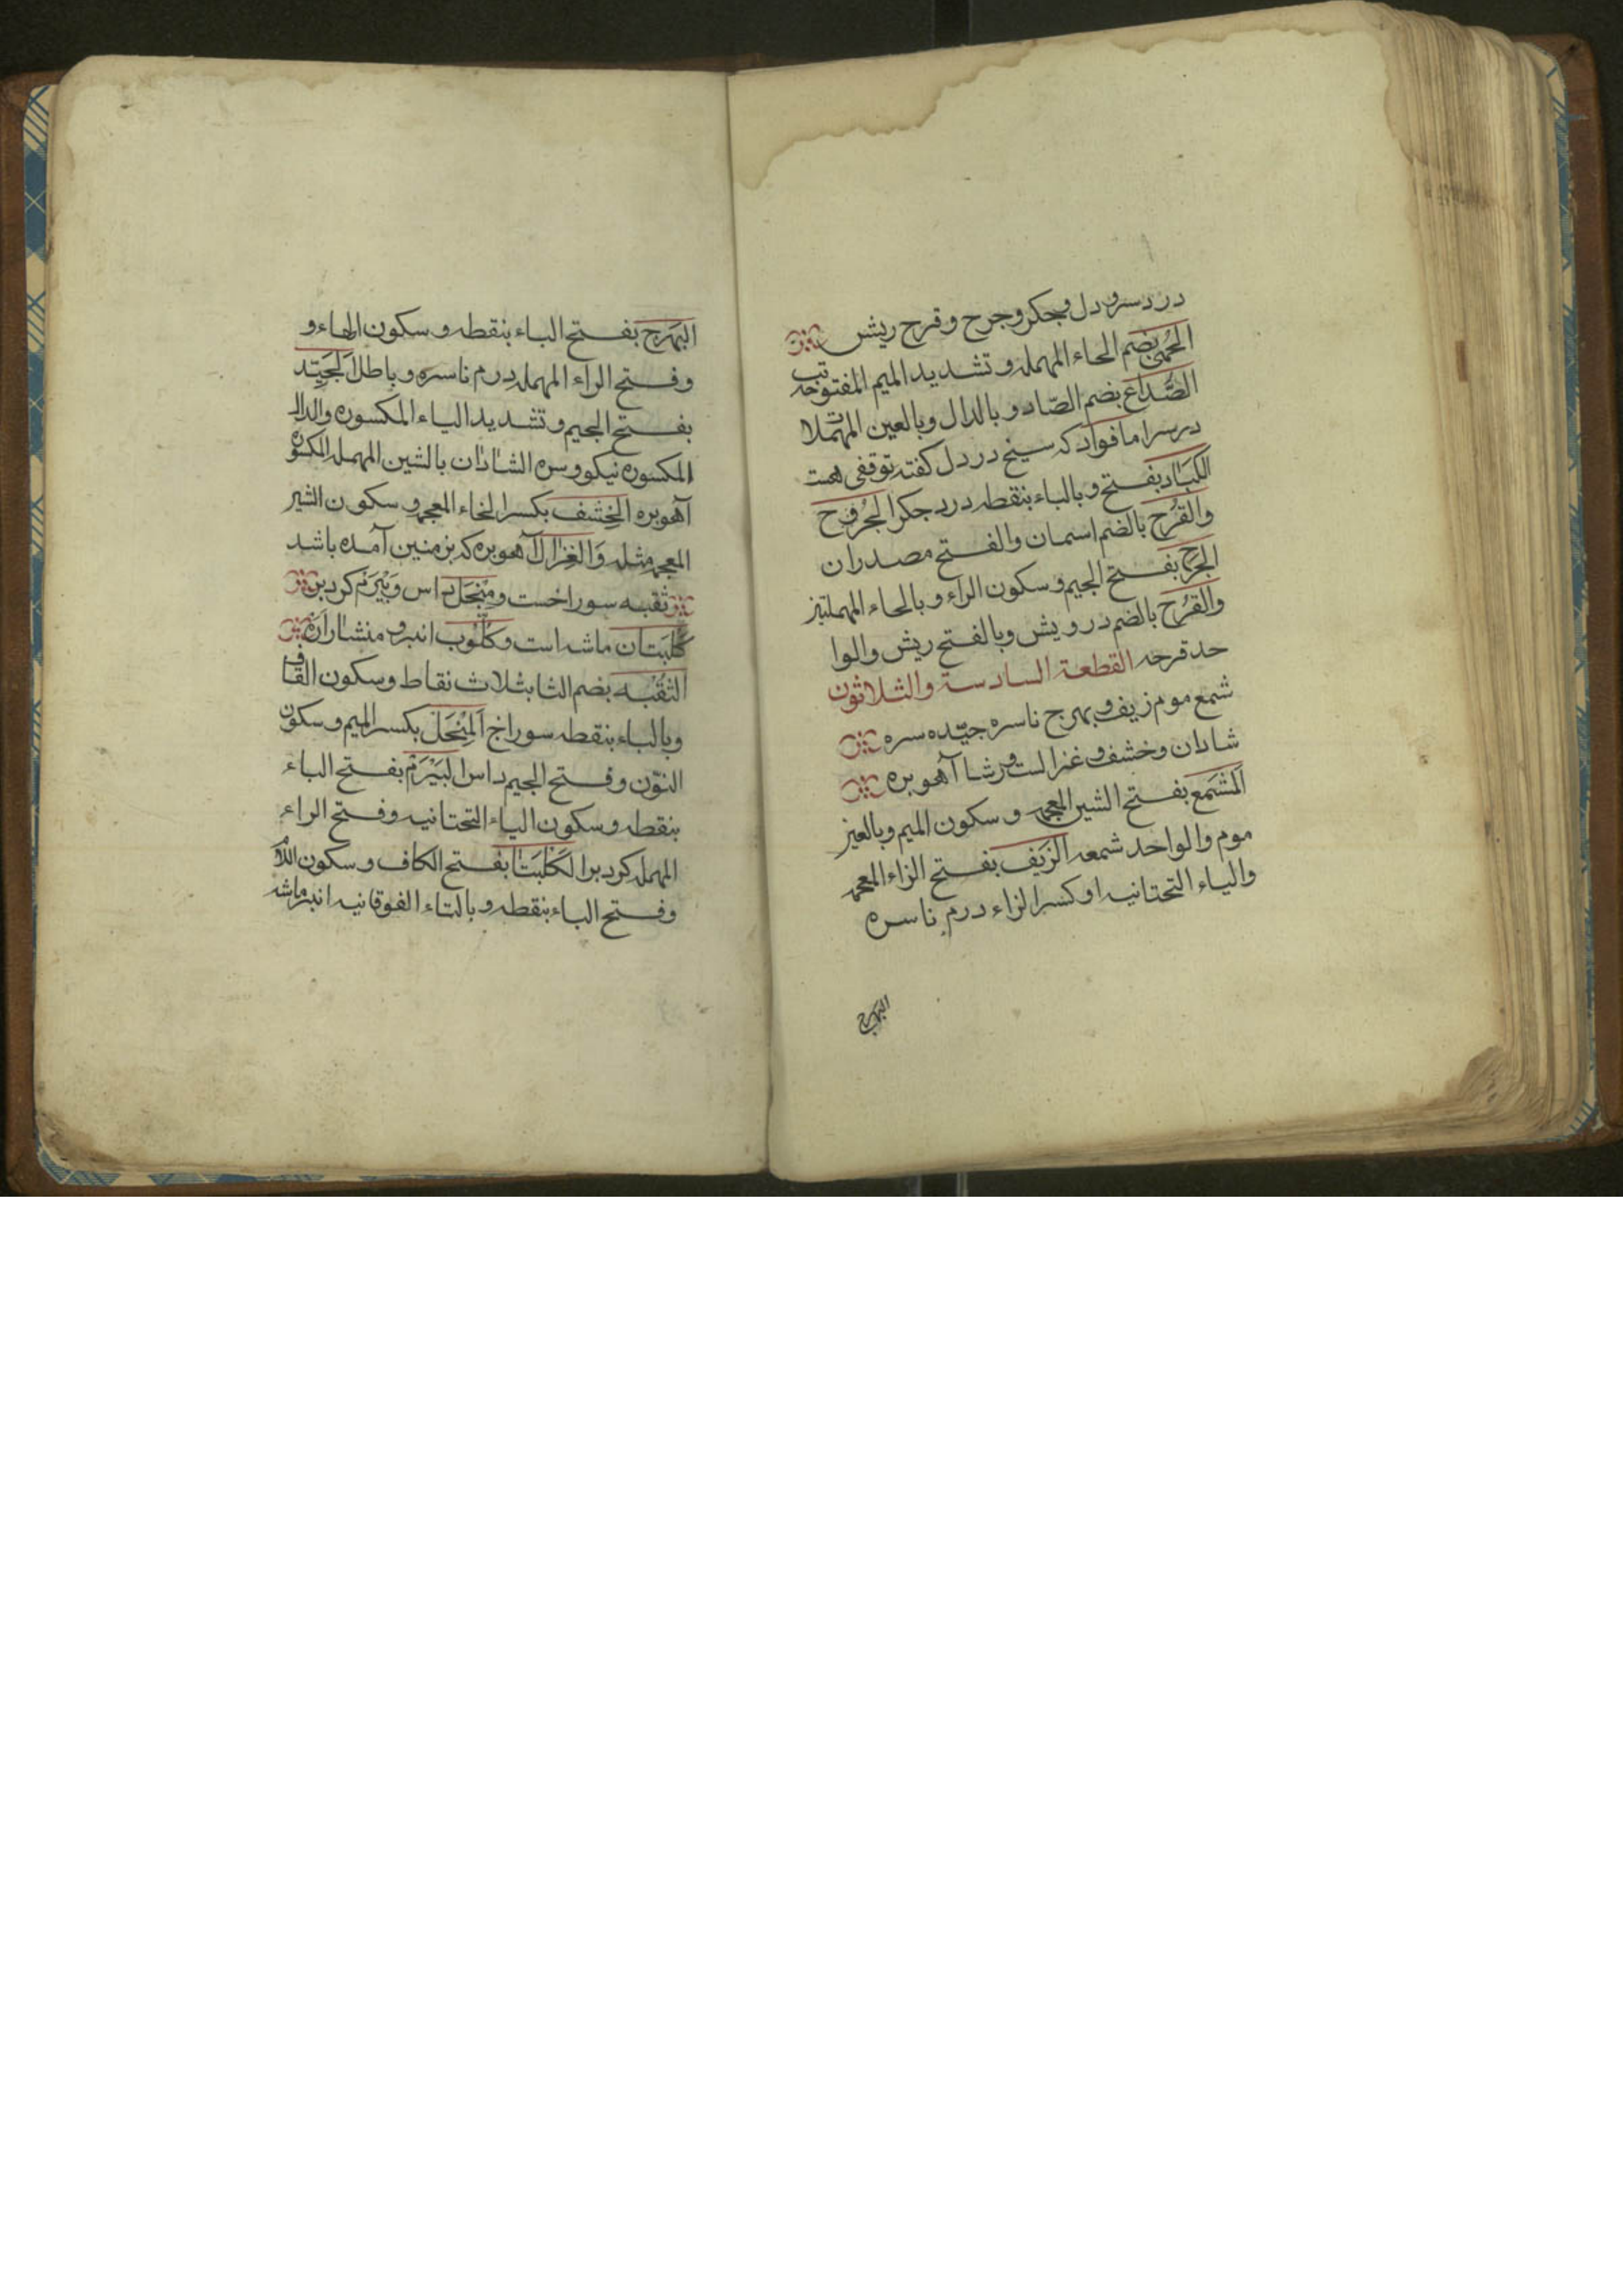 درد سر و دل و جگر و جرح و قرح ریش
الحُمّى بضم الحاء المهمله و تشدید المیم المفتوحه تب
الصُّدَاع بضم الصّاد و بالدال و بالعین المهملا
درسر اما فواد که سیخ درد دل کفته توقفی هست
الکُبَاد بفتح و بالباء بنقطه درد جکر الجُروح
والقُرح بالضم اسمان والفتح مصدران
الجَرح بفتح الجیم و سکون الراء و بالحاء المهملتیز
والقُرح بالضم درد ریش و بالفتح ریش والوا
حد قرحه القطعة السادسة والثلاثون
شمع موم زیف و بهرج ناسره جیّده سره
شادان و خشف و غزالست و رشا آهوبره
المشَمع بفتح الشین المعجمه و سکون المیم و بالعیز
موم والواحد شمعه الزَیف بفتح الزاء المعجمه
والیاء التحتانیه او کسر الزاء درم ناسره
البهرج
البَهرَج بفتح الباء بنقطه و سکون الهاء و
وفتح الراء المهمله درم ناسره و باطل اَلجَیّد
بفتح الجیم و تشدید الیاء المکسوره والدال
المکسوره نیکو و سره الشادان بالشین المهمله المکسوره
آهوبره الخِشف بکسر الخاء المعجمه و سکون الشیر
المعجمه مثله وَالغزال آهوبره که بزمنین آمده باشد
ثقبه سوراخست و مِنْجَل داس و بَیْرَم کردبر
کلبتان ماشه است و کلّوب انبر و منشار اره
الثقُبه بضم الثا بثلاث نقاط و سکون القاف
و بالباء بنقطه سوراخ اَلمِنْجَل بکسر المیم و سکون
النّون و فتح الجیم داس البَیْرَم بفتح الباء
بنقطه و سکون الیاء التحتانیه و فتح الراء
المهمله کردبر الکَلْبَتَا بفتح الکاف و سکون اللام
و فتح الباء بنقطه و بالتاء الفوقانیه انبر ماشه